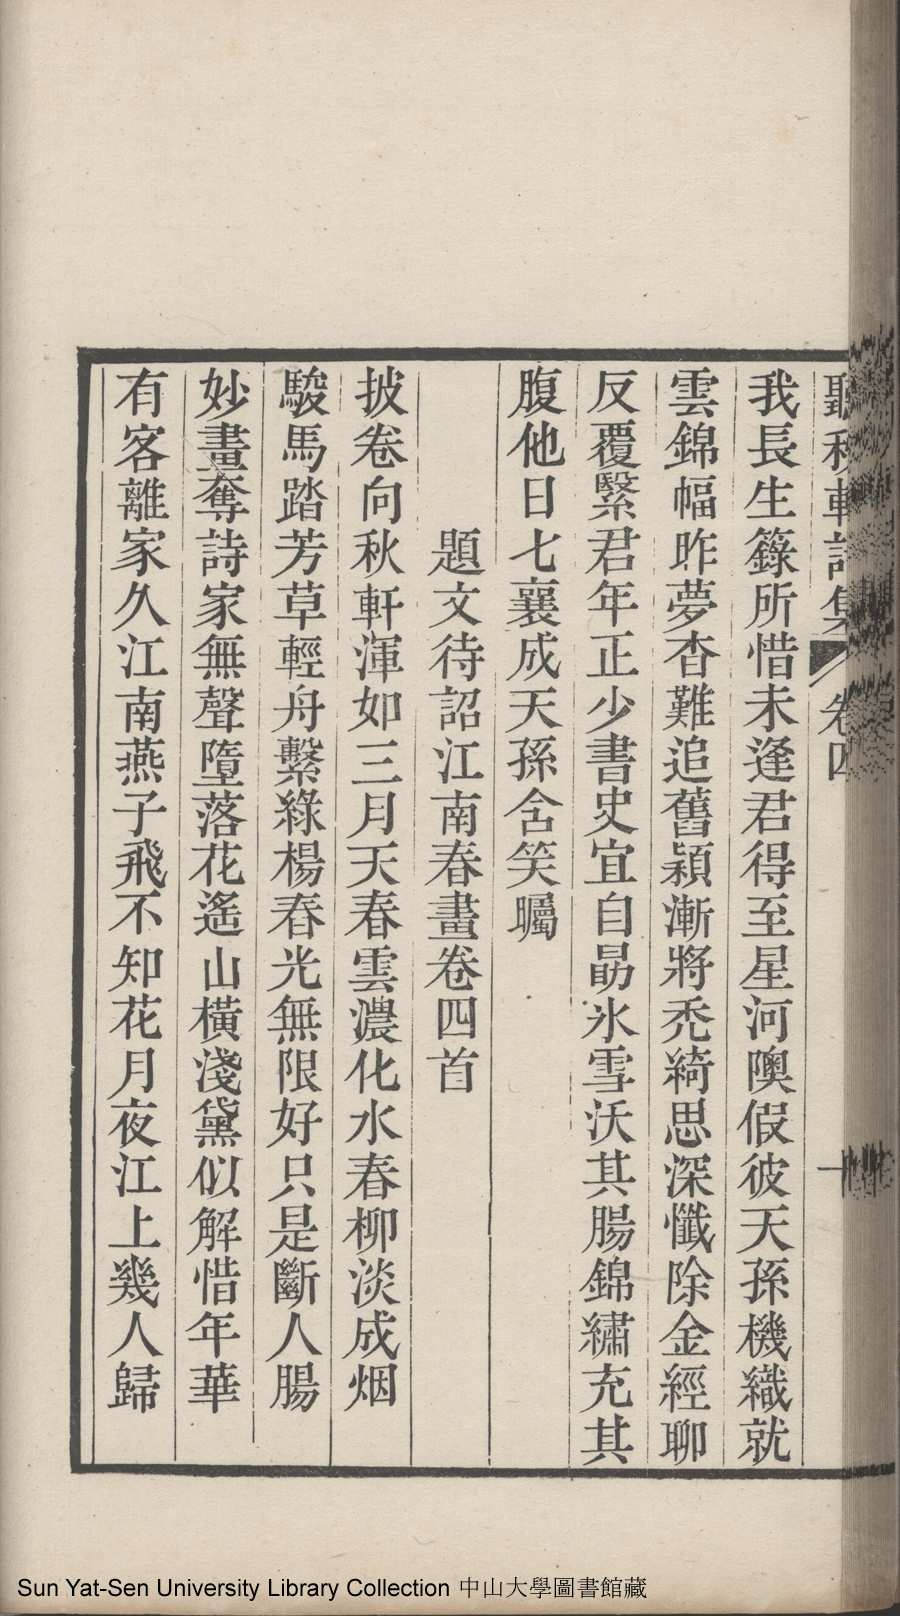 聽秋軒詩集 卷四 十
我長生籙所惜未逢君得至星河隩假彼天孫機織就
雲錦幅昨夢杳難追舊穎漸將禿綺思深懺除金經聊
反覆繄君年正少書史宜自勗氷雪沃其腸錦繡充其
腹他日七襄成天孫含笑矚
題文待詔江南春畫卷四首
披卷向秋軒渾如三月天春雲濃化水春柳淡成烟
駿馬踏芳草輕舟繫綠楊春光無限好只是斷人腸
妙畫奪詩家無聲墮落花遙山橫淺黛似解惜年華
有客離家久江南燕子飛不知花月夜江上幾人歸
Sun Yat-Sen University Library Collection 中山大學圖書館藏